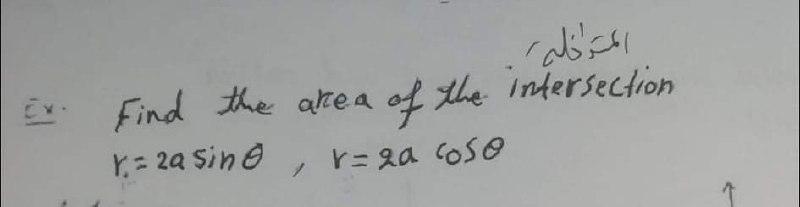 المتداخلة
Ex. Find the area of the intersection
r = 2a sin θ , r = 2a cos θ